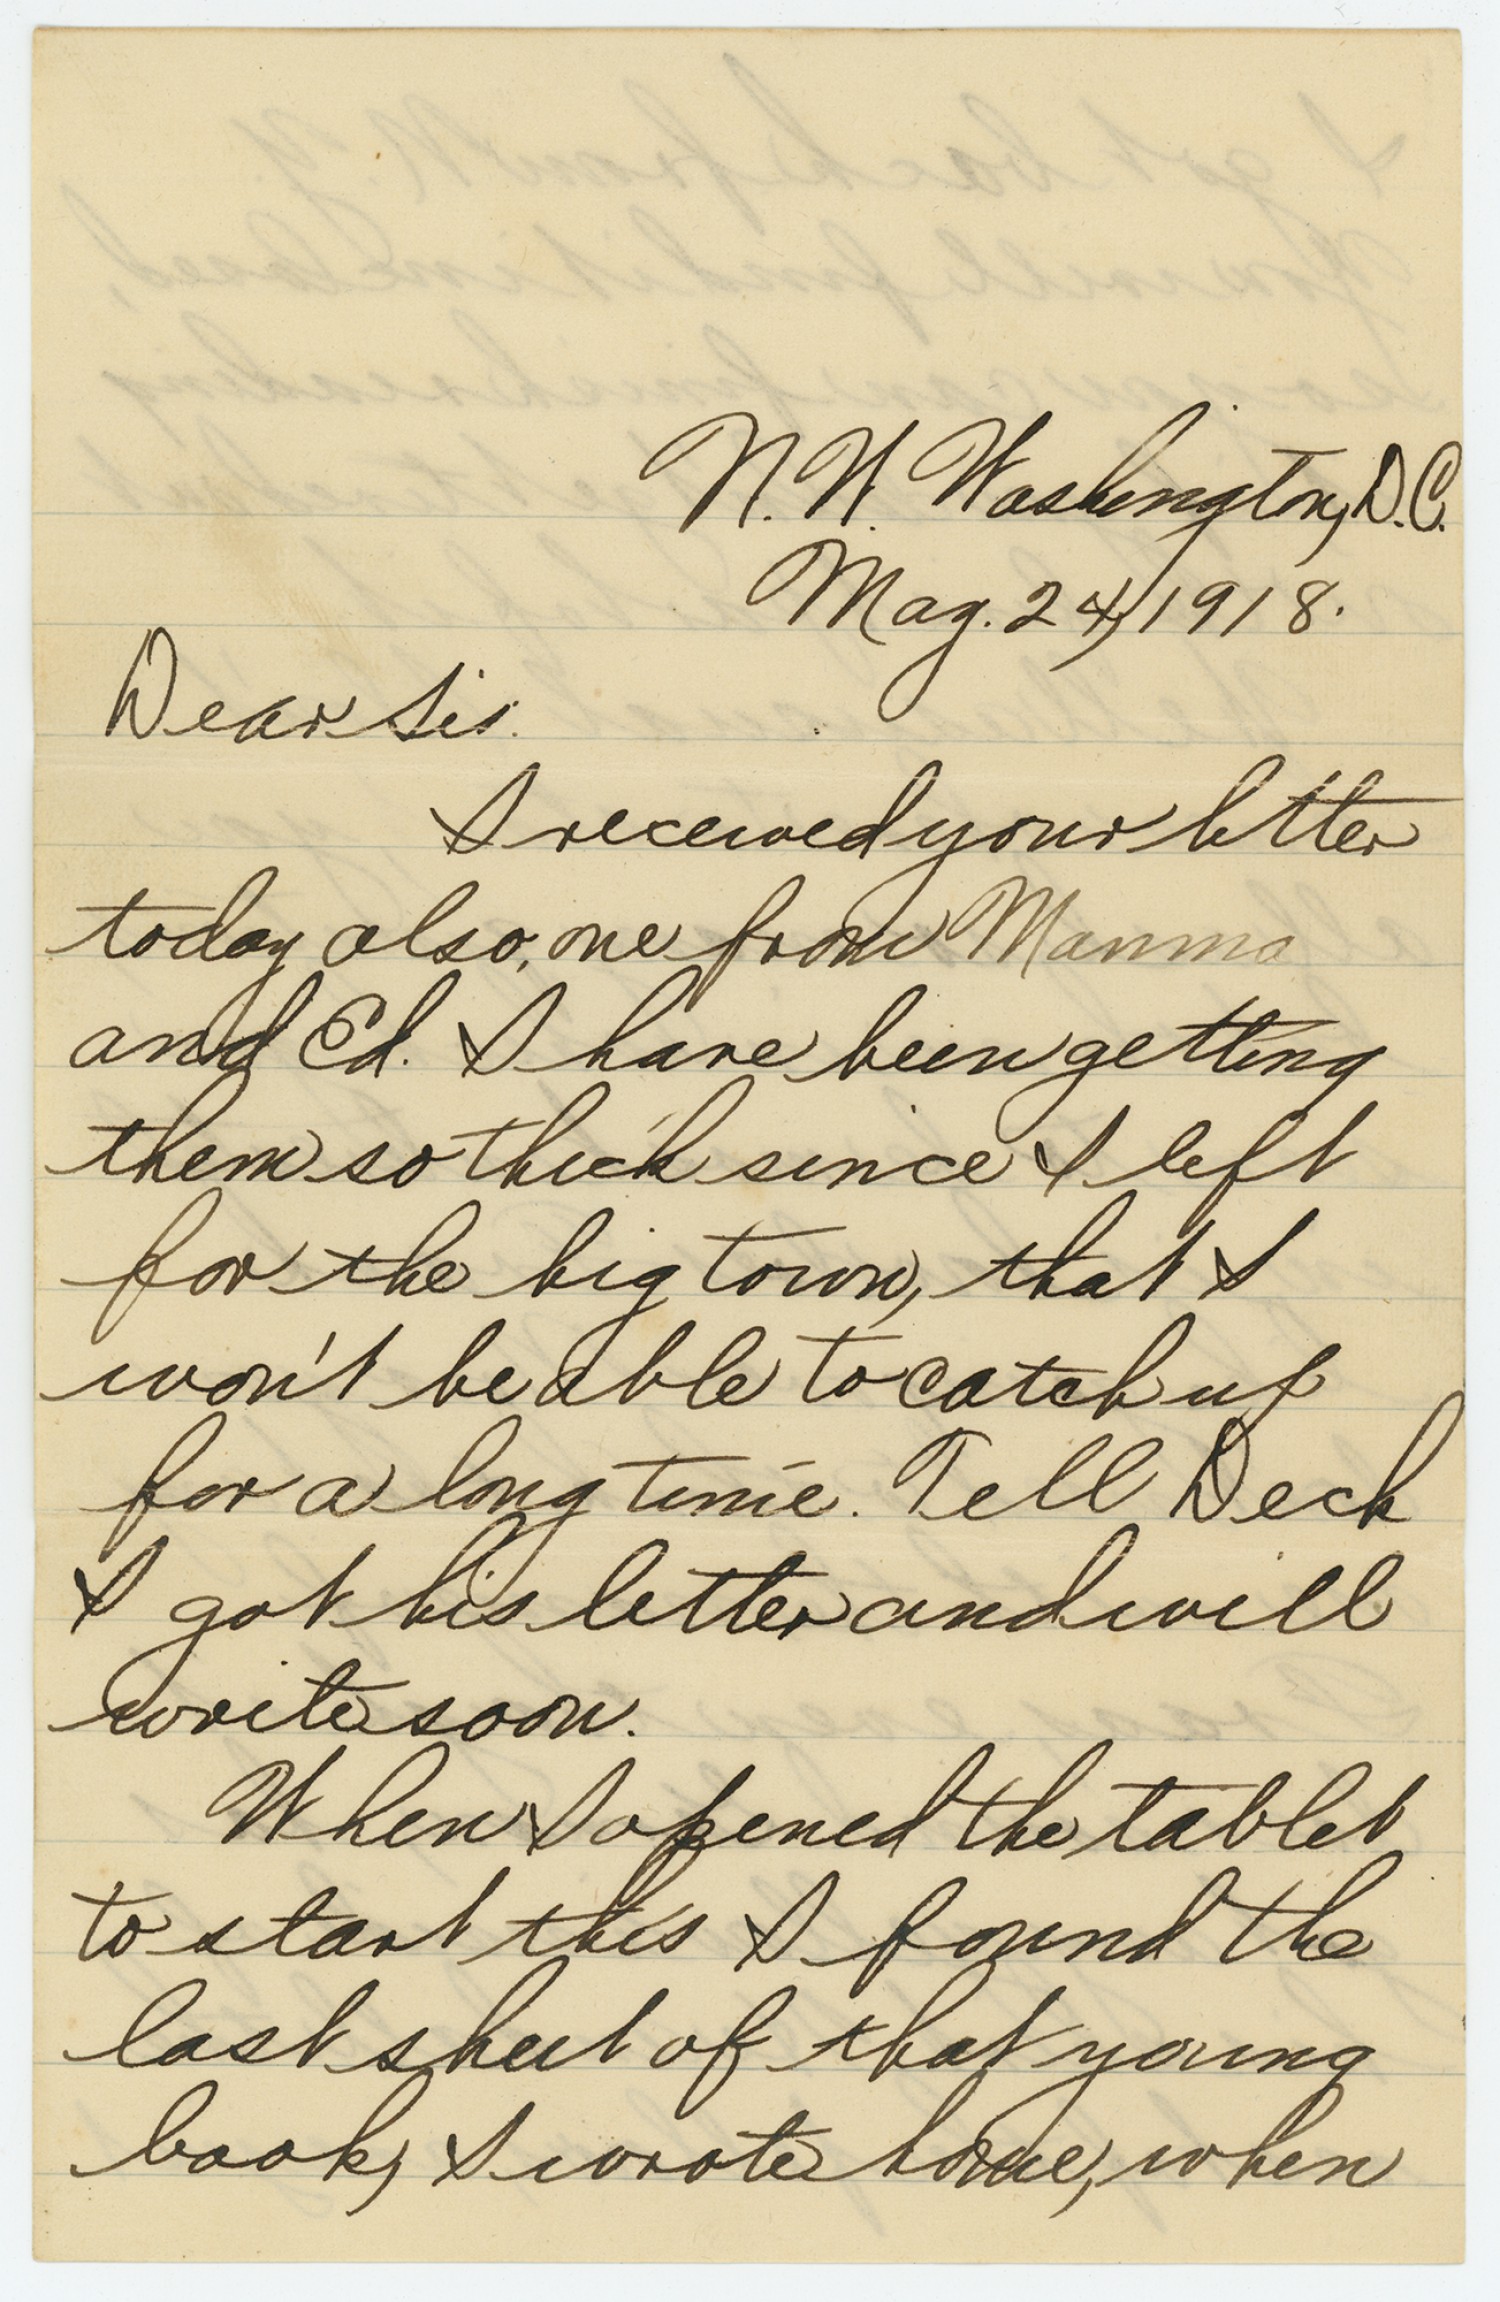 N.W. Washington, D.C.
May. 24, 1918.
Dear Sis.
I received your letter
today also, one from Mamma
and Ed. I have been getting
them so thick since I left
for the big town, that I
won't be able to catch up
for a long time. Tell Deck
I got his letter and will
write soon.
When I opened the tablet
to start this I found the
last sheet of that young
book, I wrote home, when